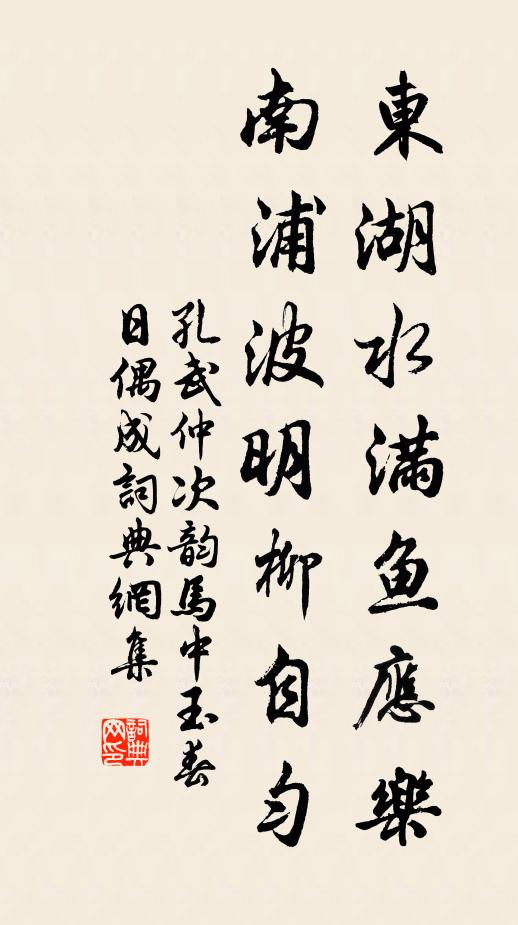 東湖水滿魚應樂
南浦波明柳自勻
孔武仲次韵馬中玉春
日偶成詞典網集
詞典
网印